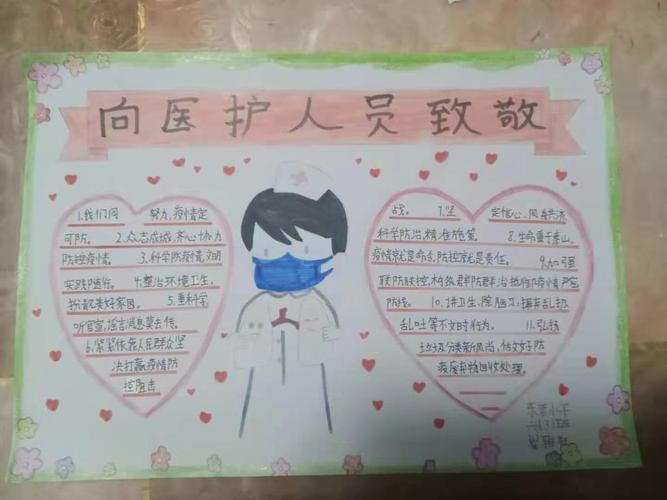 向医护人员致敬
1.我们同 努力,疫情定
可防。 2.众志成城,齐心协力
防控疫情。 3.科学防疫情,文明
实践随行。 4.整治环境卫生,
扮靓美好家园。 5.重科学
听官宣,谣言消息莫去传。
6.紧紧依靠人民群众坚
决打赢疫情防
控阻击
战。 7.坚 定信心、同舟共济
科学防治,精准施策。 8.生命重于泰山,
疫情就是命令,防控就是责任。 9.加强
联防联控,构筑群防群治抵御疫情严
防线。 10.讲卫生,除陋习,摒弃乱扔
乱吐等不文明行为。 11.弘扬
垃圾分类新风尚,
疫废弃物回收处理。
东 小学
六(3)班